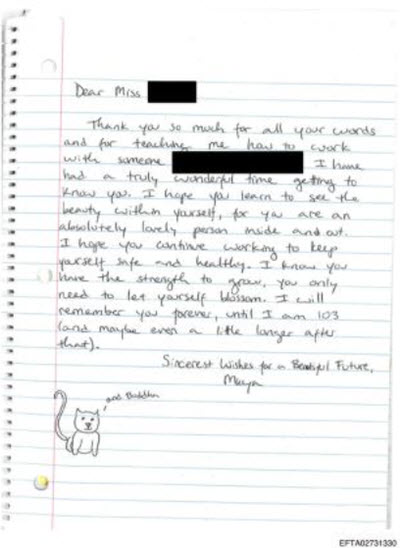 Dear Miss
Thank you so much for all your words
and for teaching me how to work
with someone I have
had a truly wonderful time getting to
know you. I hope you learn to see the
beauty within yourself, for you are an
absolutely lovely person inside and out.
I hope you continue working to keep
yourself safe and healthy. I know you
have the strength to grow, you only
need to let yourself blossom. I will
remember you forever, until I am 103
(and maybe even a little longer after
that).
Sincerest Wishes for a Beautiful Future,
Maya
and Buddha
EFTA02731330